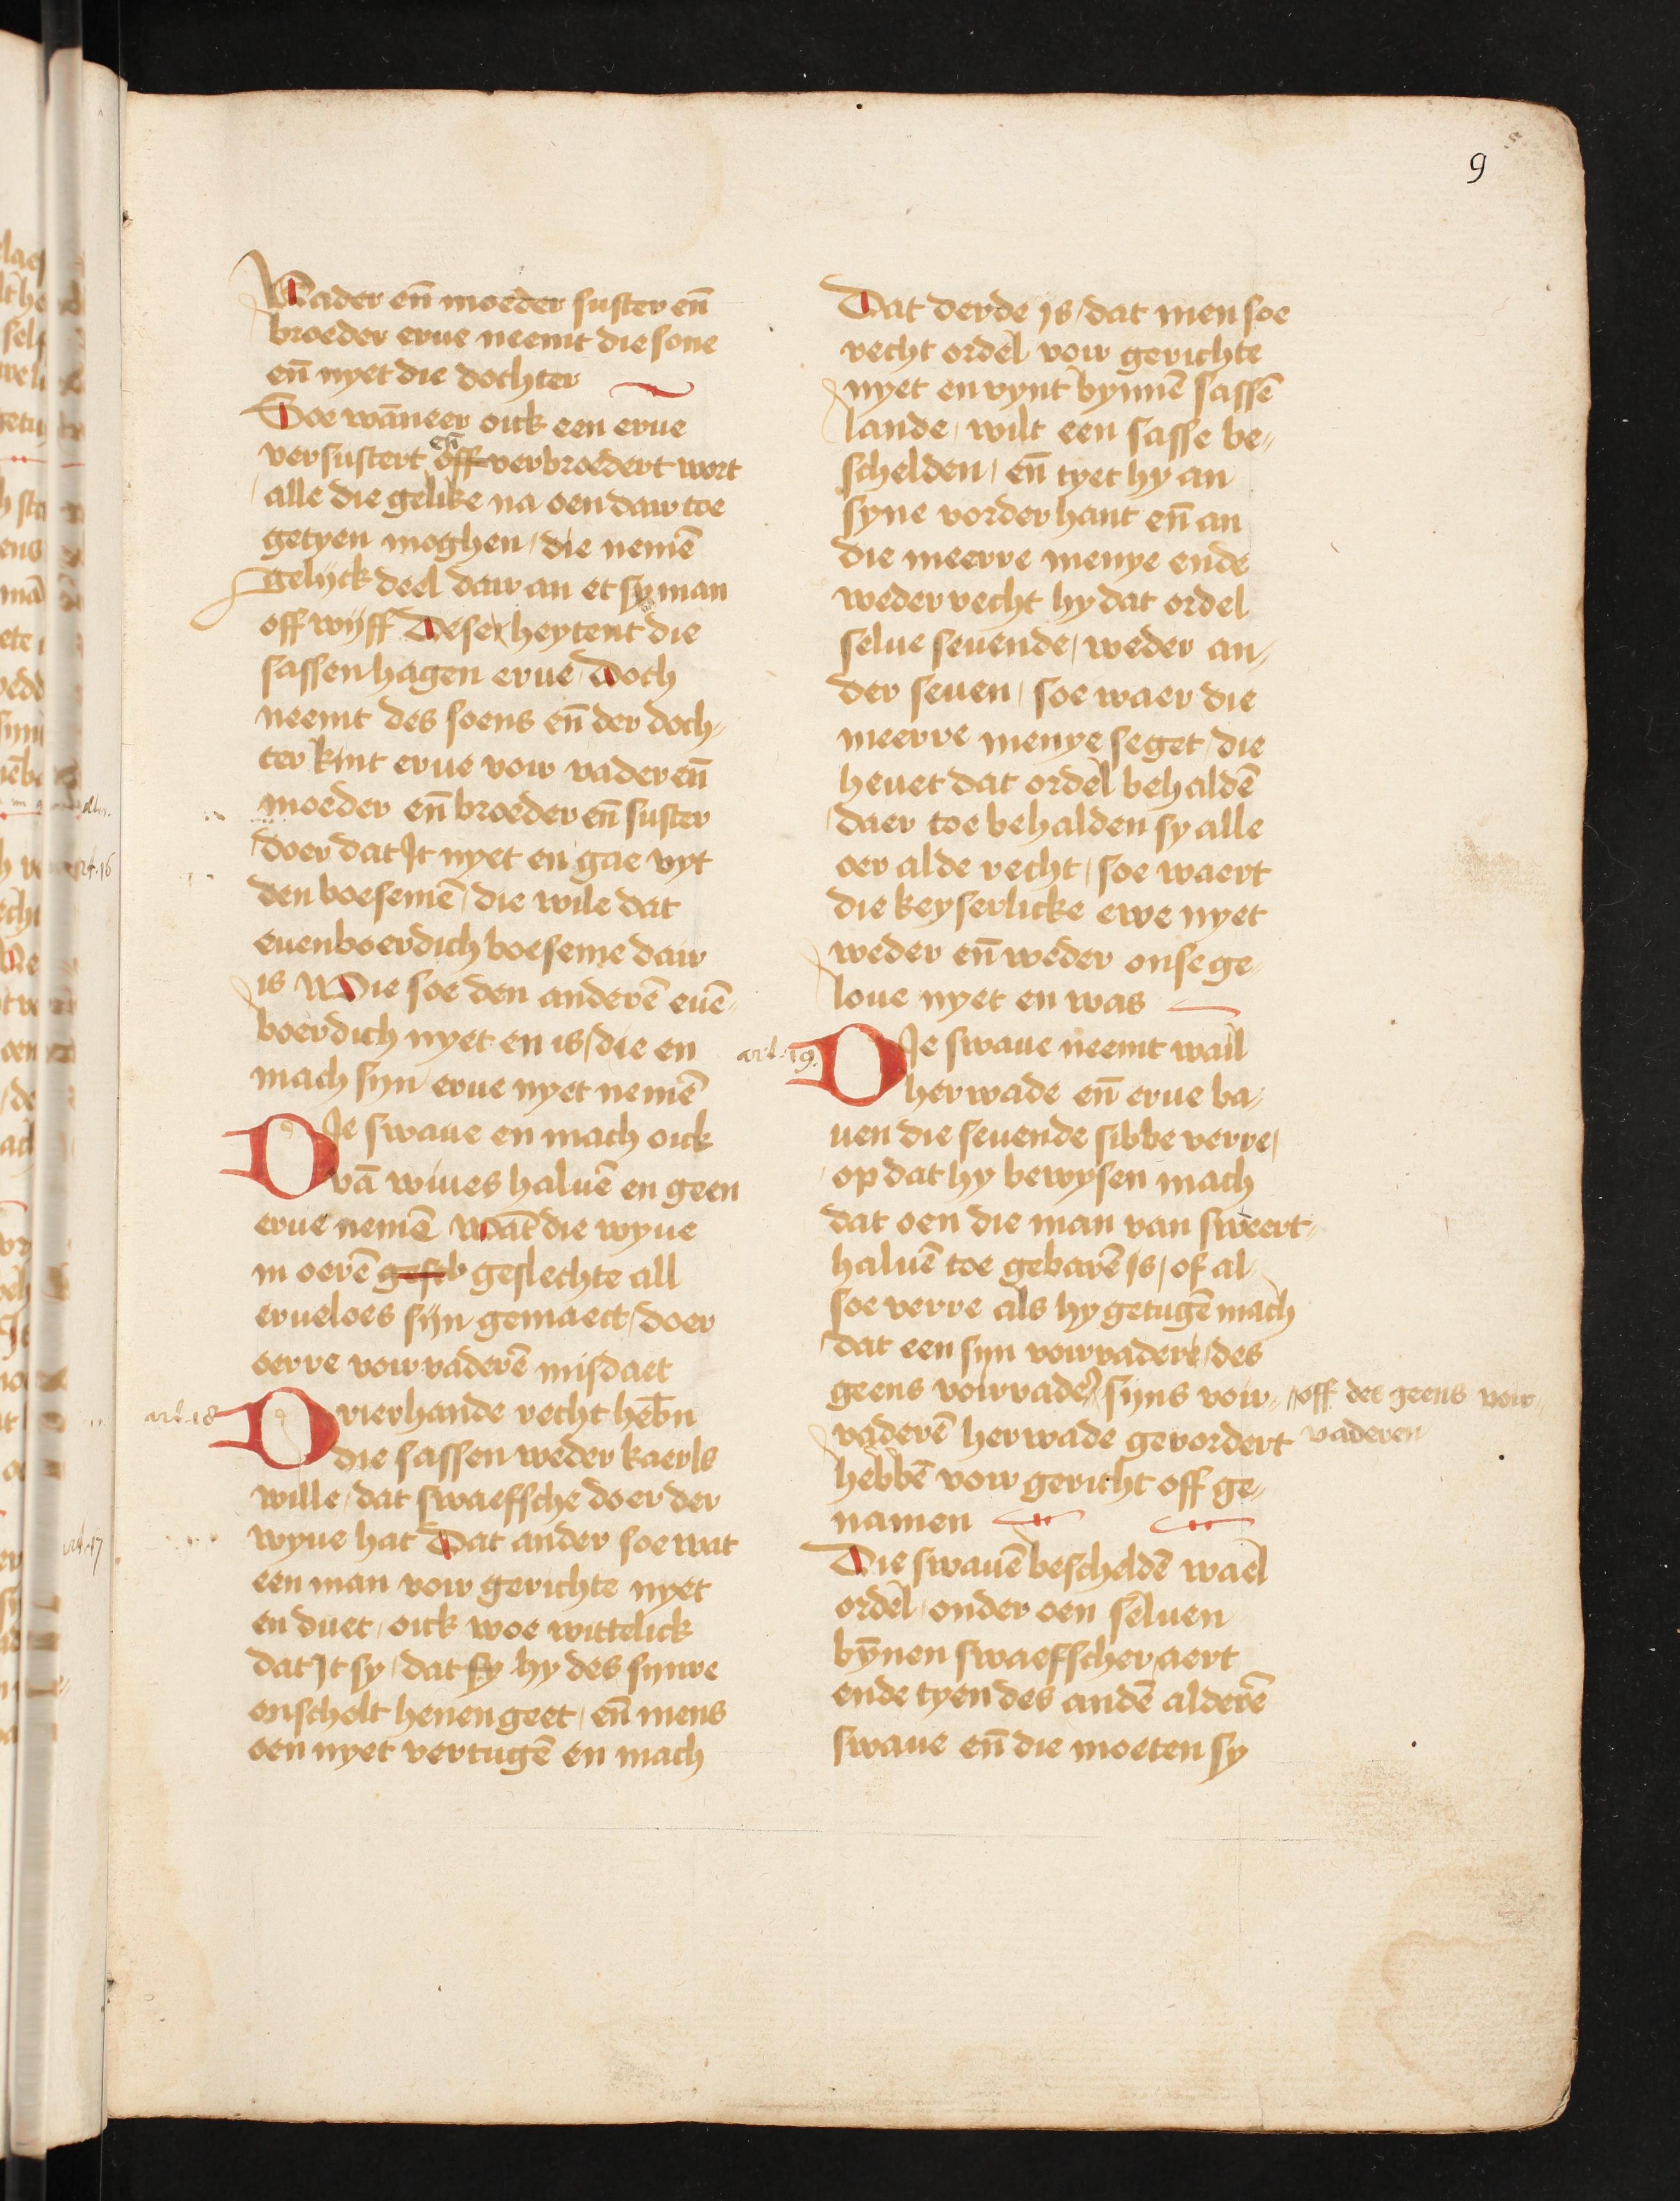 9
Vader en̄ moeder suster en̄
broeder erue neemt die sone
en̄ nyet die dochter
Soe wāneer oick een erue
versustert off verbroedert wort
en̄
alle die gelike na oen dair toe
getyen moghen / die nemē
gelyck deel dair an et sy man
off wijff Dese heytent die
sassen hagen erue / Doch
neemt des soens en̄ der doch-
ter kint erue voir vader en̄
moeder en̄ broeder en̄ suster
doer dat It nyet en gae vyt
den boesemē / die wile dat
euenboerdich boeseme dair
is Die soe den anderē euē-
boerdich nyet en is / die en
mach sijn erue nyet nemē
DIe swaue en mach oick
vā wiues haluē en geen
erue nemē Wāt die wyue
in oerē geslechte all
erueloes sijn gemaect / doer
oerre voirvaderē misdaet
art. 18
Drierhande recht heb̄n
die sassen weder kaerls
wille / dat swaefsche doer der
wyue hat Dat ander soe wat
een man voir gerichte nyet
en duet / oick woe wittelick
dat It sy / dat sy hy des sijnre
onscholt henen geet / en̄ mens
oen nyet vertugē en mach
Dat derde is / dat men soe
recht ordel voir gerichte
nyet en vynt bynnē sassē
lande / wilt een sasse be-
schelden / en̄ tyet hy an
syne vorder hant en̄ an
die meerre menye ende
weder recht hy dat ordel
selue seuende / weder an-
der seuen / soe waer die
meerre menye seget / die
heuet dat ordel behaldē
daer toe behalden sy alle
oer alde recht / soe waert
die keyserlicke ewe nyet
weder en̄ weder onse ge-
loue nyet en was
art. 19.
DIe swaue neemt wail
herwade en̄ erue ba-
uen die seuende sibbe verre /
op dat hy bewysen mach
dat oen die man van sweert-
haluē toe gebarē is / of al-
soe verre als hy getugē mach
dat een sijn voirvadere / des
geens voirvader sijns voir-
vaderē herwade gevordert
off des geens voir-
vaderen
hebbē voir gericht off ge-
namen
Die swauē bescheldē wael
ordel / onder oen seluen
bȳnen swaefscher aert
ende tyen des andē alderē
swaue en̄ die moeten sy